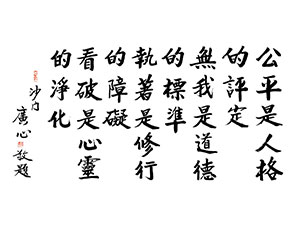 公平是人格
的評定
無我是道德
的標準
執著是修行
的障礙
看破是心靈
的淨化
沙門
廣心敬題